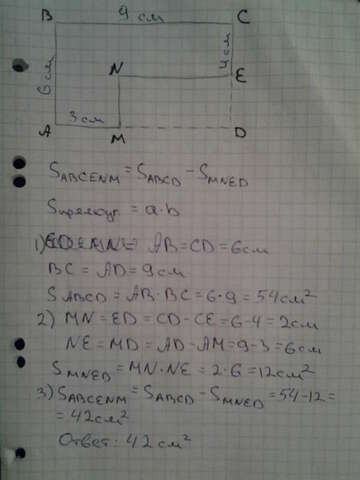 B 9 см C
6 см
4 см
N E
3 см
A M D
S ABCENM = S ABCD - S MNED
S прямоуг = a·b
1) AB = CD = 6 см
BC = AD = 9 см
S ABCD = AB · BC = 6 · 9 = 54 см²
2) MN = ED = CD - CE = 6 - 4 = 2 см
NE = MD = AD - AM = 9 - 3 = 6 см
S MNED = MN · NE = 2 · 6 = 12 см²
3) S ABCENM = S ABCD - S MNED = 54 - 12 =
= 42 см²
Ответ: 42 см²